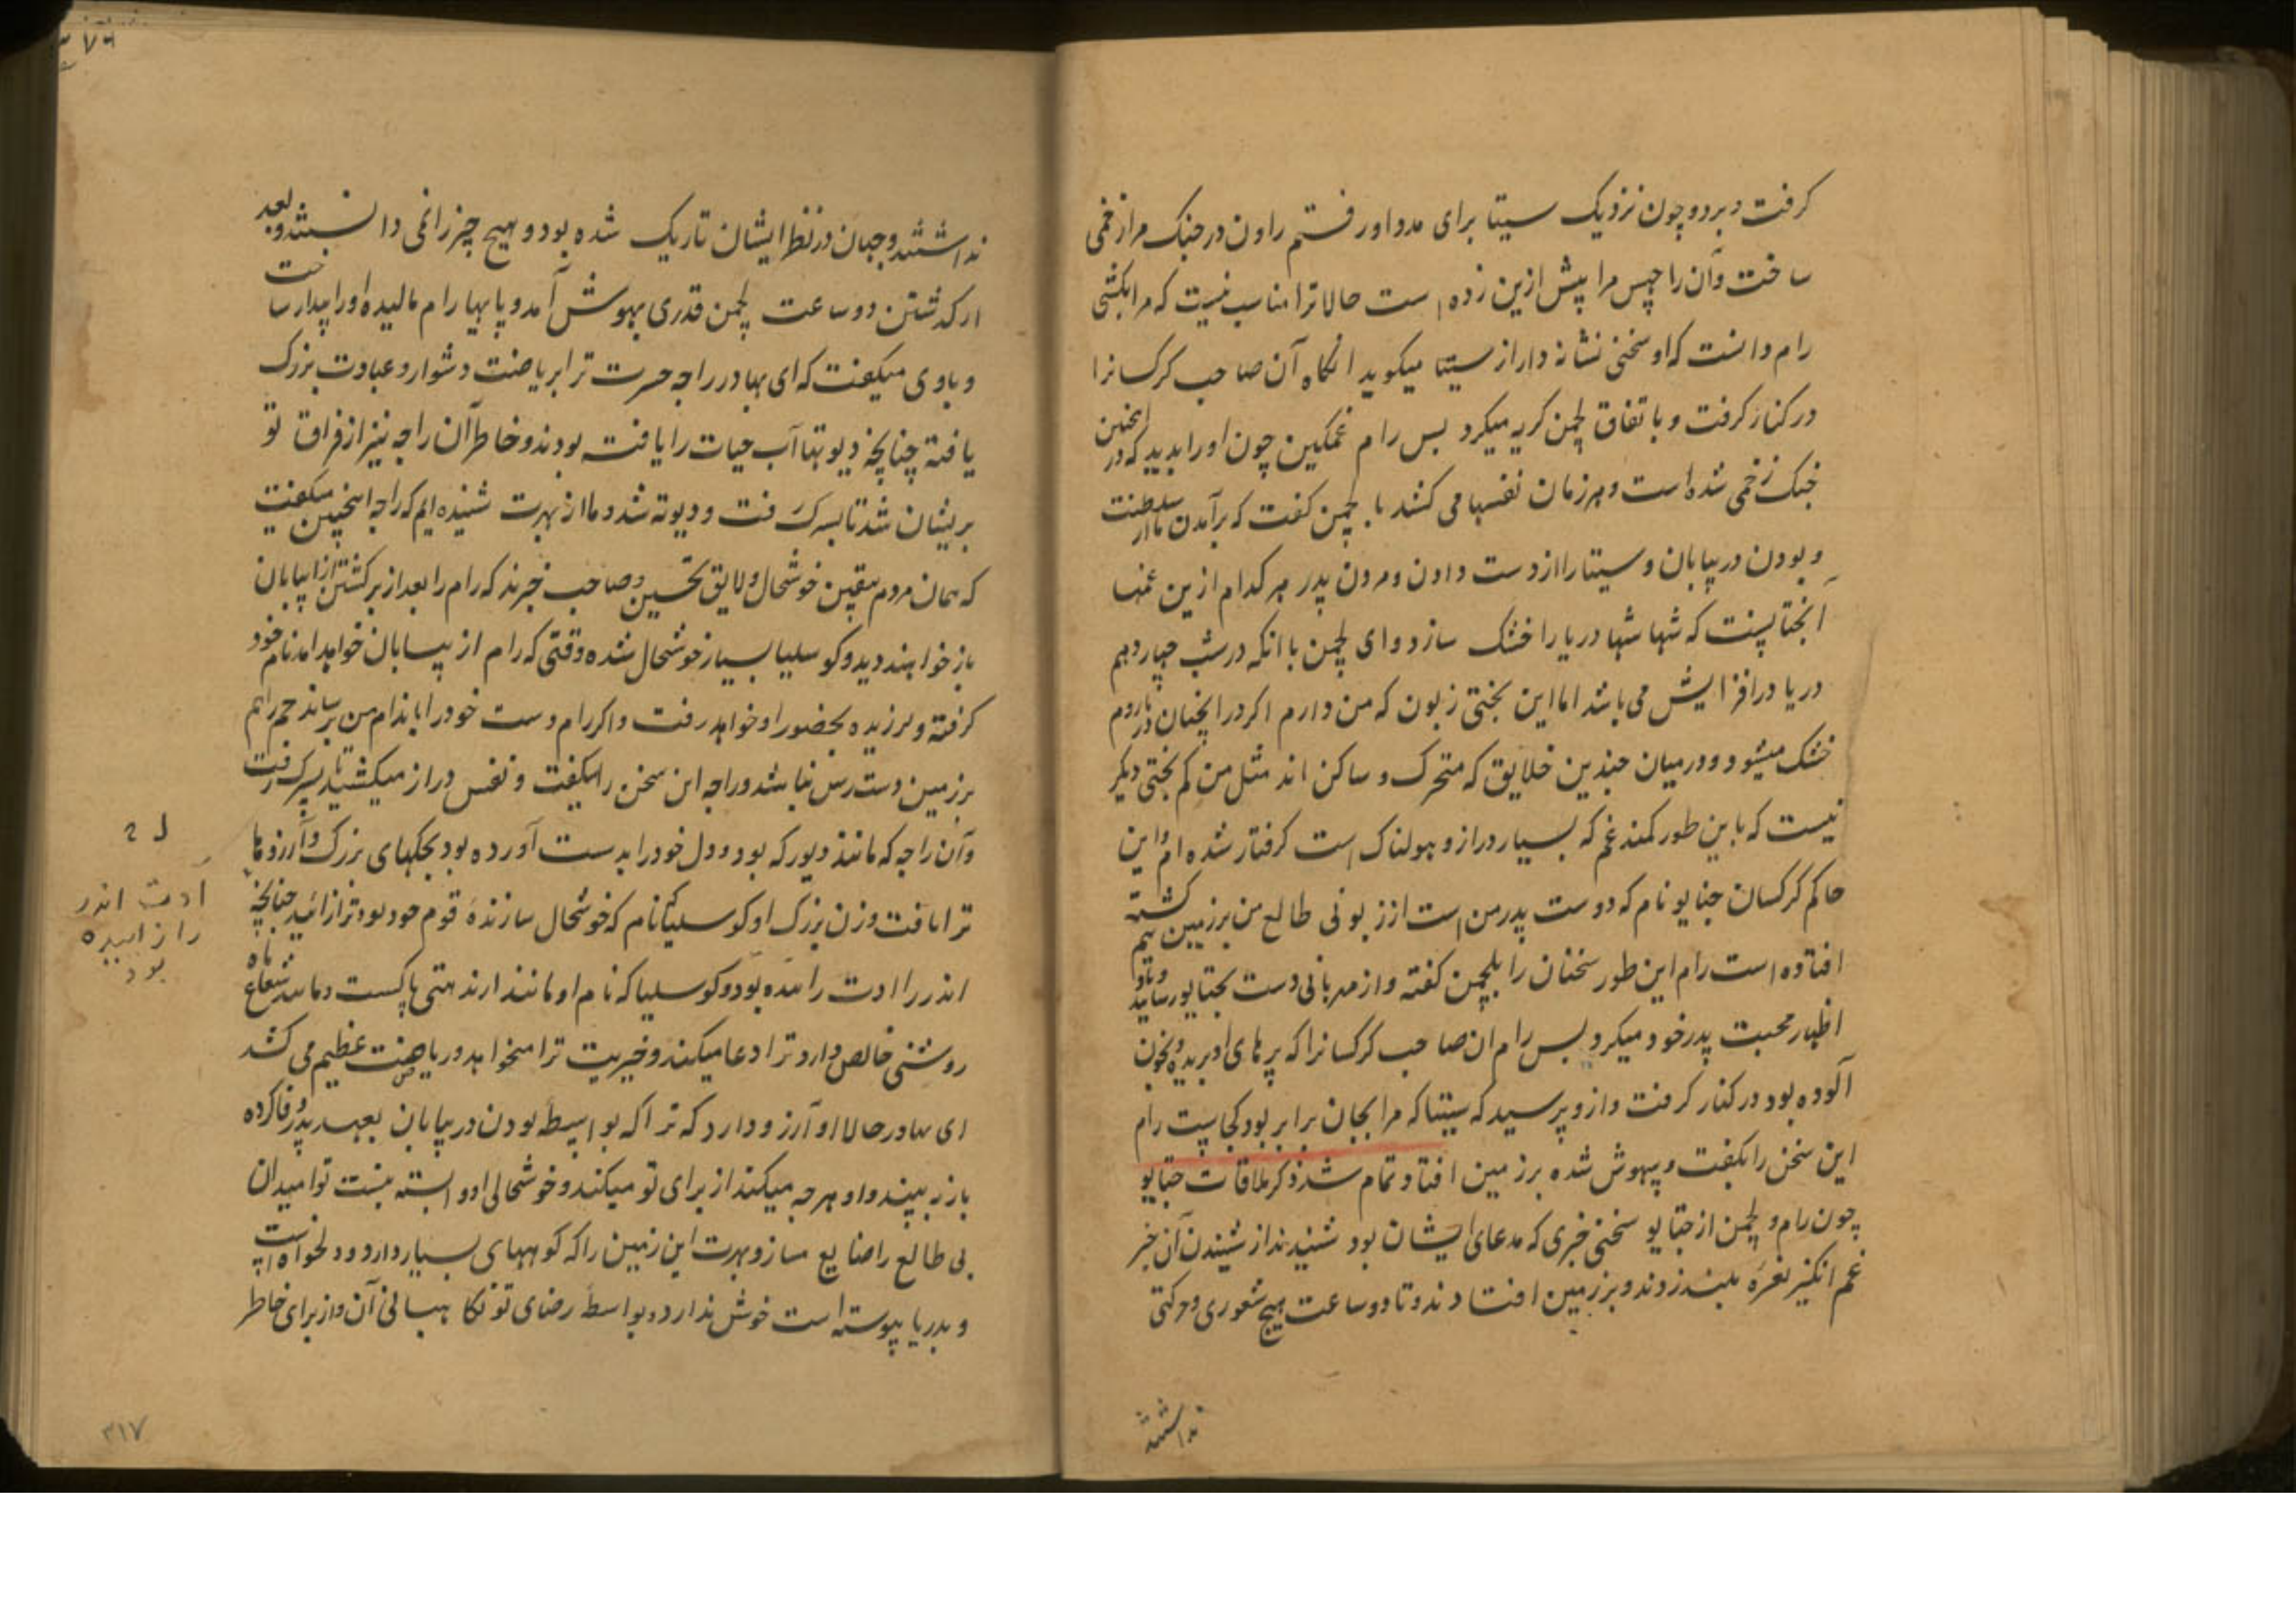 گرفت و برد و چون نزدیک سیتا برای مدد او رفتم راون در جنک مرا زخمی
ساخت و آن راچهس مرا پیش ازین زده است حالا ترا مناسب نیست که مرا بکشی
رام دانست که او سخنی نشانه دار از سیتا میکوید انکاه آن صاحب کرکسانرا
در کنار کرفت و باتفاق لچمن کریه میکرد پس رام غمکین چون او را بدید که در اینچنین
جنک زخمی شده است و هر زمان نفسها می کشد با لچمن کفت که برآمدن ما از سلطنت
و بودن در بیابان و سیتا را از دست دادن و مردن پدر هر کدام ازین غمها
آنچنانست که تنها تنها دریا را خشک سازد و ای لچمن با انکه در شب چهاردهم
دریا در افزایش می باشد اما این بختی زبون که من دارم اکر در اینچنان دریا روم
خشک میشود و در میان چندین خلایق که متحرک و ساکن اند مثل من کم بختی دیکر
نیست که باین طور کمند غم که بسیار دراز و هولناک است کرفتار شده ام و این
حاکم کرکسان جتایو نام که دوست پدر من است از زبونی طالع من بر زمین کشته
افتاده است رام این طور سخنان را بلچمن کفته و از مهربانی دست بجتایو رسانید
اظهار محبت پدر خود میکرد پس رام ان صاحب کرکسانرا که پرهای او بریده و بخون
آلوده بود در کنار کرفت و ازو پرسید که سیتا که مرا بجان برابر بود کجاست رام
این سخن را بکفت و بیهوش شده بر زمین افتاد تمام شد ذکر ملاقات جتایو
چون رام و لچمن از جتایو سخنی خبری که مدعای ایشان بود شنیدند از شنیدن آن خبر
غم انکیز نعره بلند زدند و بر زمین افتادند و تا دو ساعت هیچ شعوری و حرکتی
نداشتند
نداشتند و جهان در نظر ایشان تاریک شده بود و هیچ چیز را نمی دانستند و بعد
از کذشتن دو ساعت لچمن قدری بهوش آمد و پایهای رام مالیده او را بیدار ساخت
و باوی میکفت که ای بهادر راجه جسرت ترا بریاضت دشوار و عبادت بزرک
یافته چنانچه دیوتها آب حیات را یافته بودند و خاطر آن راجه نیز از فراق تو
پریشان شد تا بسرک رفت و دیوته شد و ما از بهرت شنیده ایم که راجه اینچنین میکفت
که همان مردم بیقین خوشحال و لایق تحسین و صاحب خبرند که رام را بعد از برکشتن از بیابان
باز خواهند دید و کوسلیا بسیار خوشحال شده وقتی که رام از بیابان خواهد امد نام خود
کرفته و لرزیده بحضور او خواهد رفت و اکر رام دست خود را باندام من برساند
بر زمین دسترس نباشد و راجه این سخن را میکفت و نفس دراز میکشید تا بسرک رفت
و آن راجه که مانند دیو که بود و دل خود را بدست آورده بود بجکهای بزرک و آرزوها
ترا یافت و زن بزرک او کوسلیا نام که خوشحال سازنده قوم خود بود ترا زائید چنانچه
اندر را ادت زائیده بود و کوسلیا که نام او مانند ماه
روشنی خالص دارد ترا دعا میکند و خیریت ترا میخواهد و ریاضت عظیم می کشد
ای بهادر حالا او آرزو دارد که ترا که بواسطه بودن در بیابان بعهد پدر وفا کرده
باز به بیند و او هر چه میکند از برای تو میکند و خوشحالی او وابسته بتست تو امید آن
بی طالع را ضایع مساز و بهرت این زمین را که کوههای بسیار دارد و دلخواه است
و بدریا پیوسته است خوش ندارد و بواسطه رضای تو نکاهبانی آن و از برای خاطر
ادت اندر
را زاییده
بود
۳۱۷